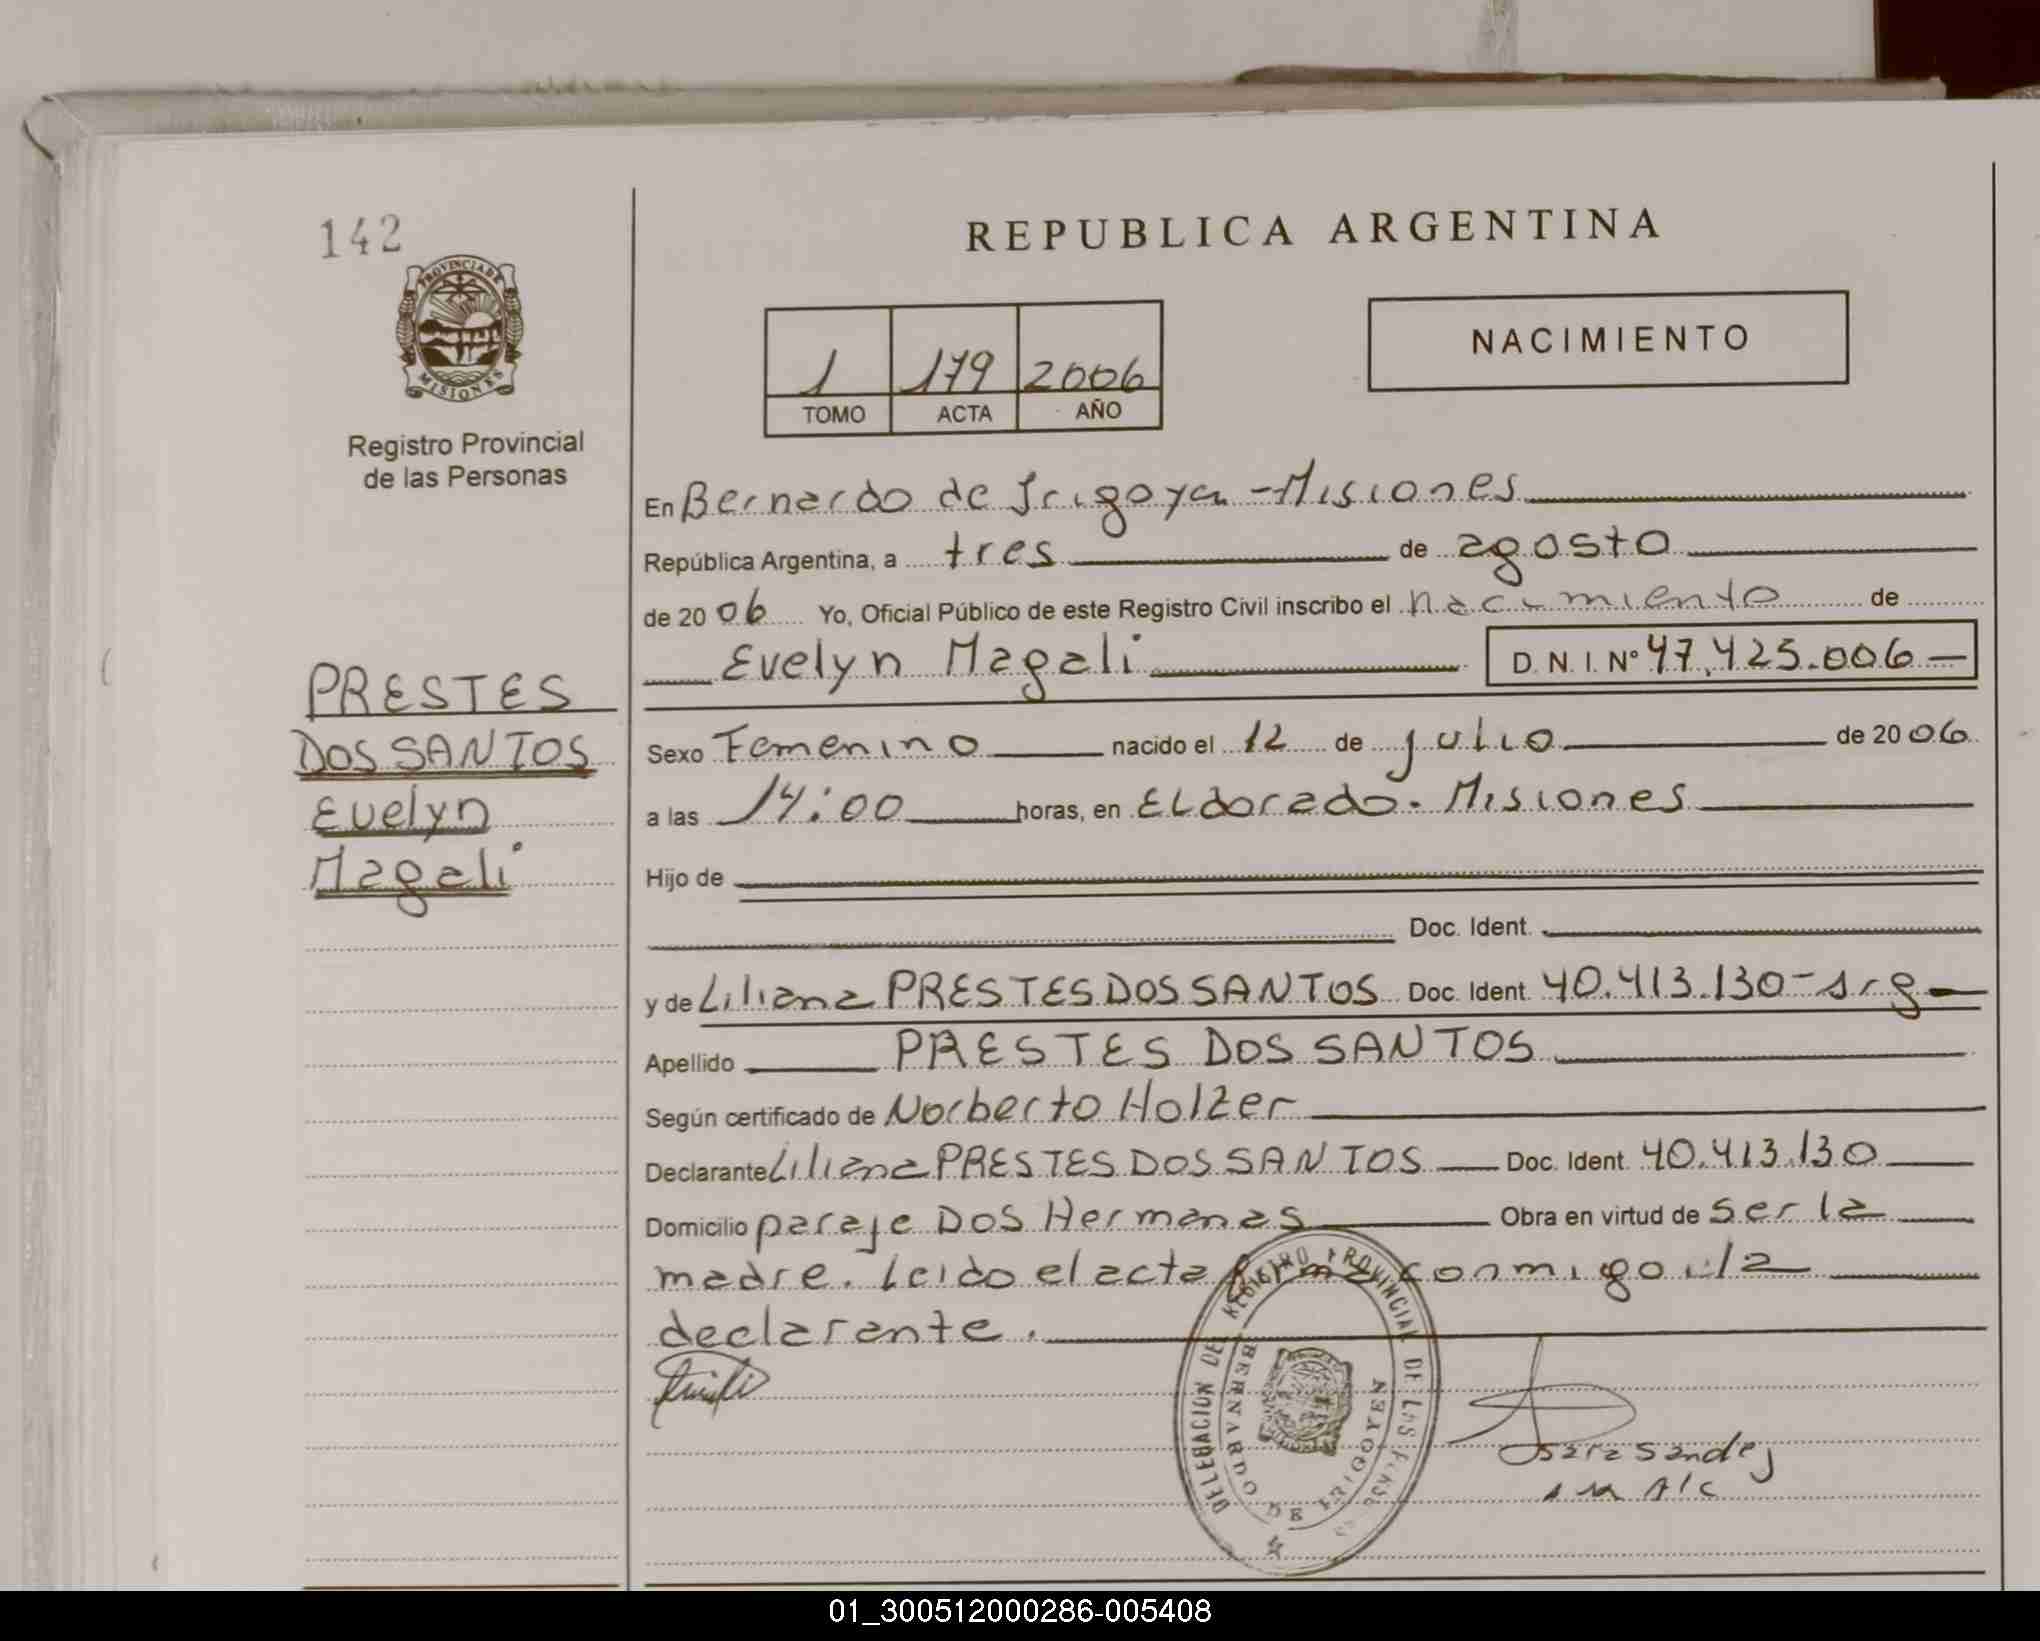 142
PROVINCIA DE
MISIONES
Registro Provincial
de las Personas
REPUBLICA ARGENTINA
1 179 2006
TOMO ACTA AÑO
NACIMIENTO
En Bernardo de Irigoyen - Misiones
República Argentina, a tres de agosto
de 20 06 Yo, Oficial Público de este Registro Civil inscribo el nacimiento de
Evelyn Magali D. N. I. Nº 47.425.006
PRESTES
DOS SANTOS
Evelyn
Magali
Sexo Femenino nacido el 12 de julio de 20 06
a las 14:00 horas, en Eldorado. Misiones
Hijo de
Doc. Ident.
y de Liliana PRESTES DOS SANTOS Doc. Ident. 40.413.130 - Arg
Apellido PRESTES DOS SANTOS
Según certificado de Norberto Holzer
Declarante Liliana PRESTES DOS SANTOS Doc. Ident. 40.413.130
Domicilio paraje Dos Hermanas Obra en virtud de ser la
madre. Leido el acta firma conmigo la
declarante.
DELEGACION DEL REGISTRO PROVINCIAL DE LAS
BERNARDO DE IRIGOYEN
Sara
A/C
01_300512000286-005408